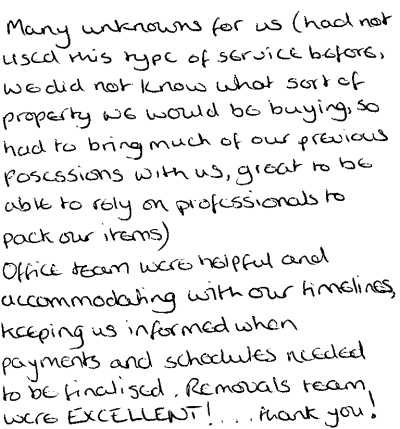 Many unknowns for us (had not
used this type of service before,
we did not know what sort of
property we would be buying, so
had to bring much of our previous
posessions with us, great to be
able to rely on professionals to
pack our items)
Office team were helpful and
accommodating with our timelines,
keeping us informed when
payments and schedules needed
to be finalised. Removals team
were EXCELLENT! ... thank you!